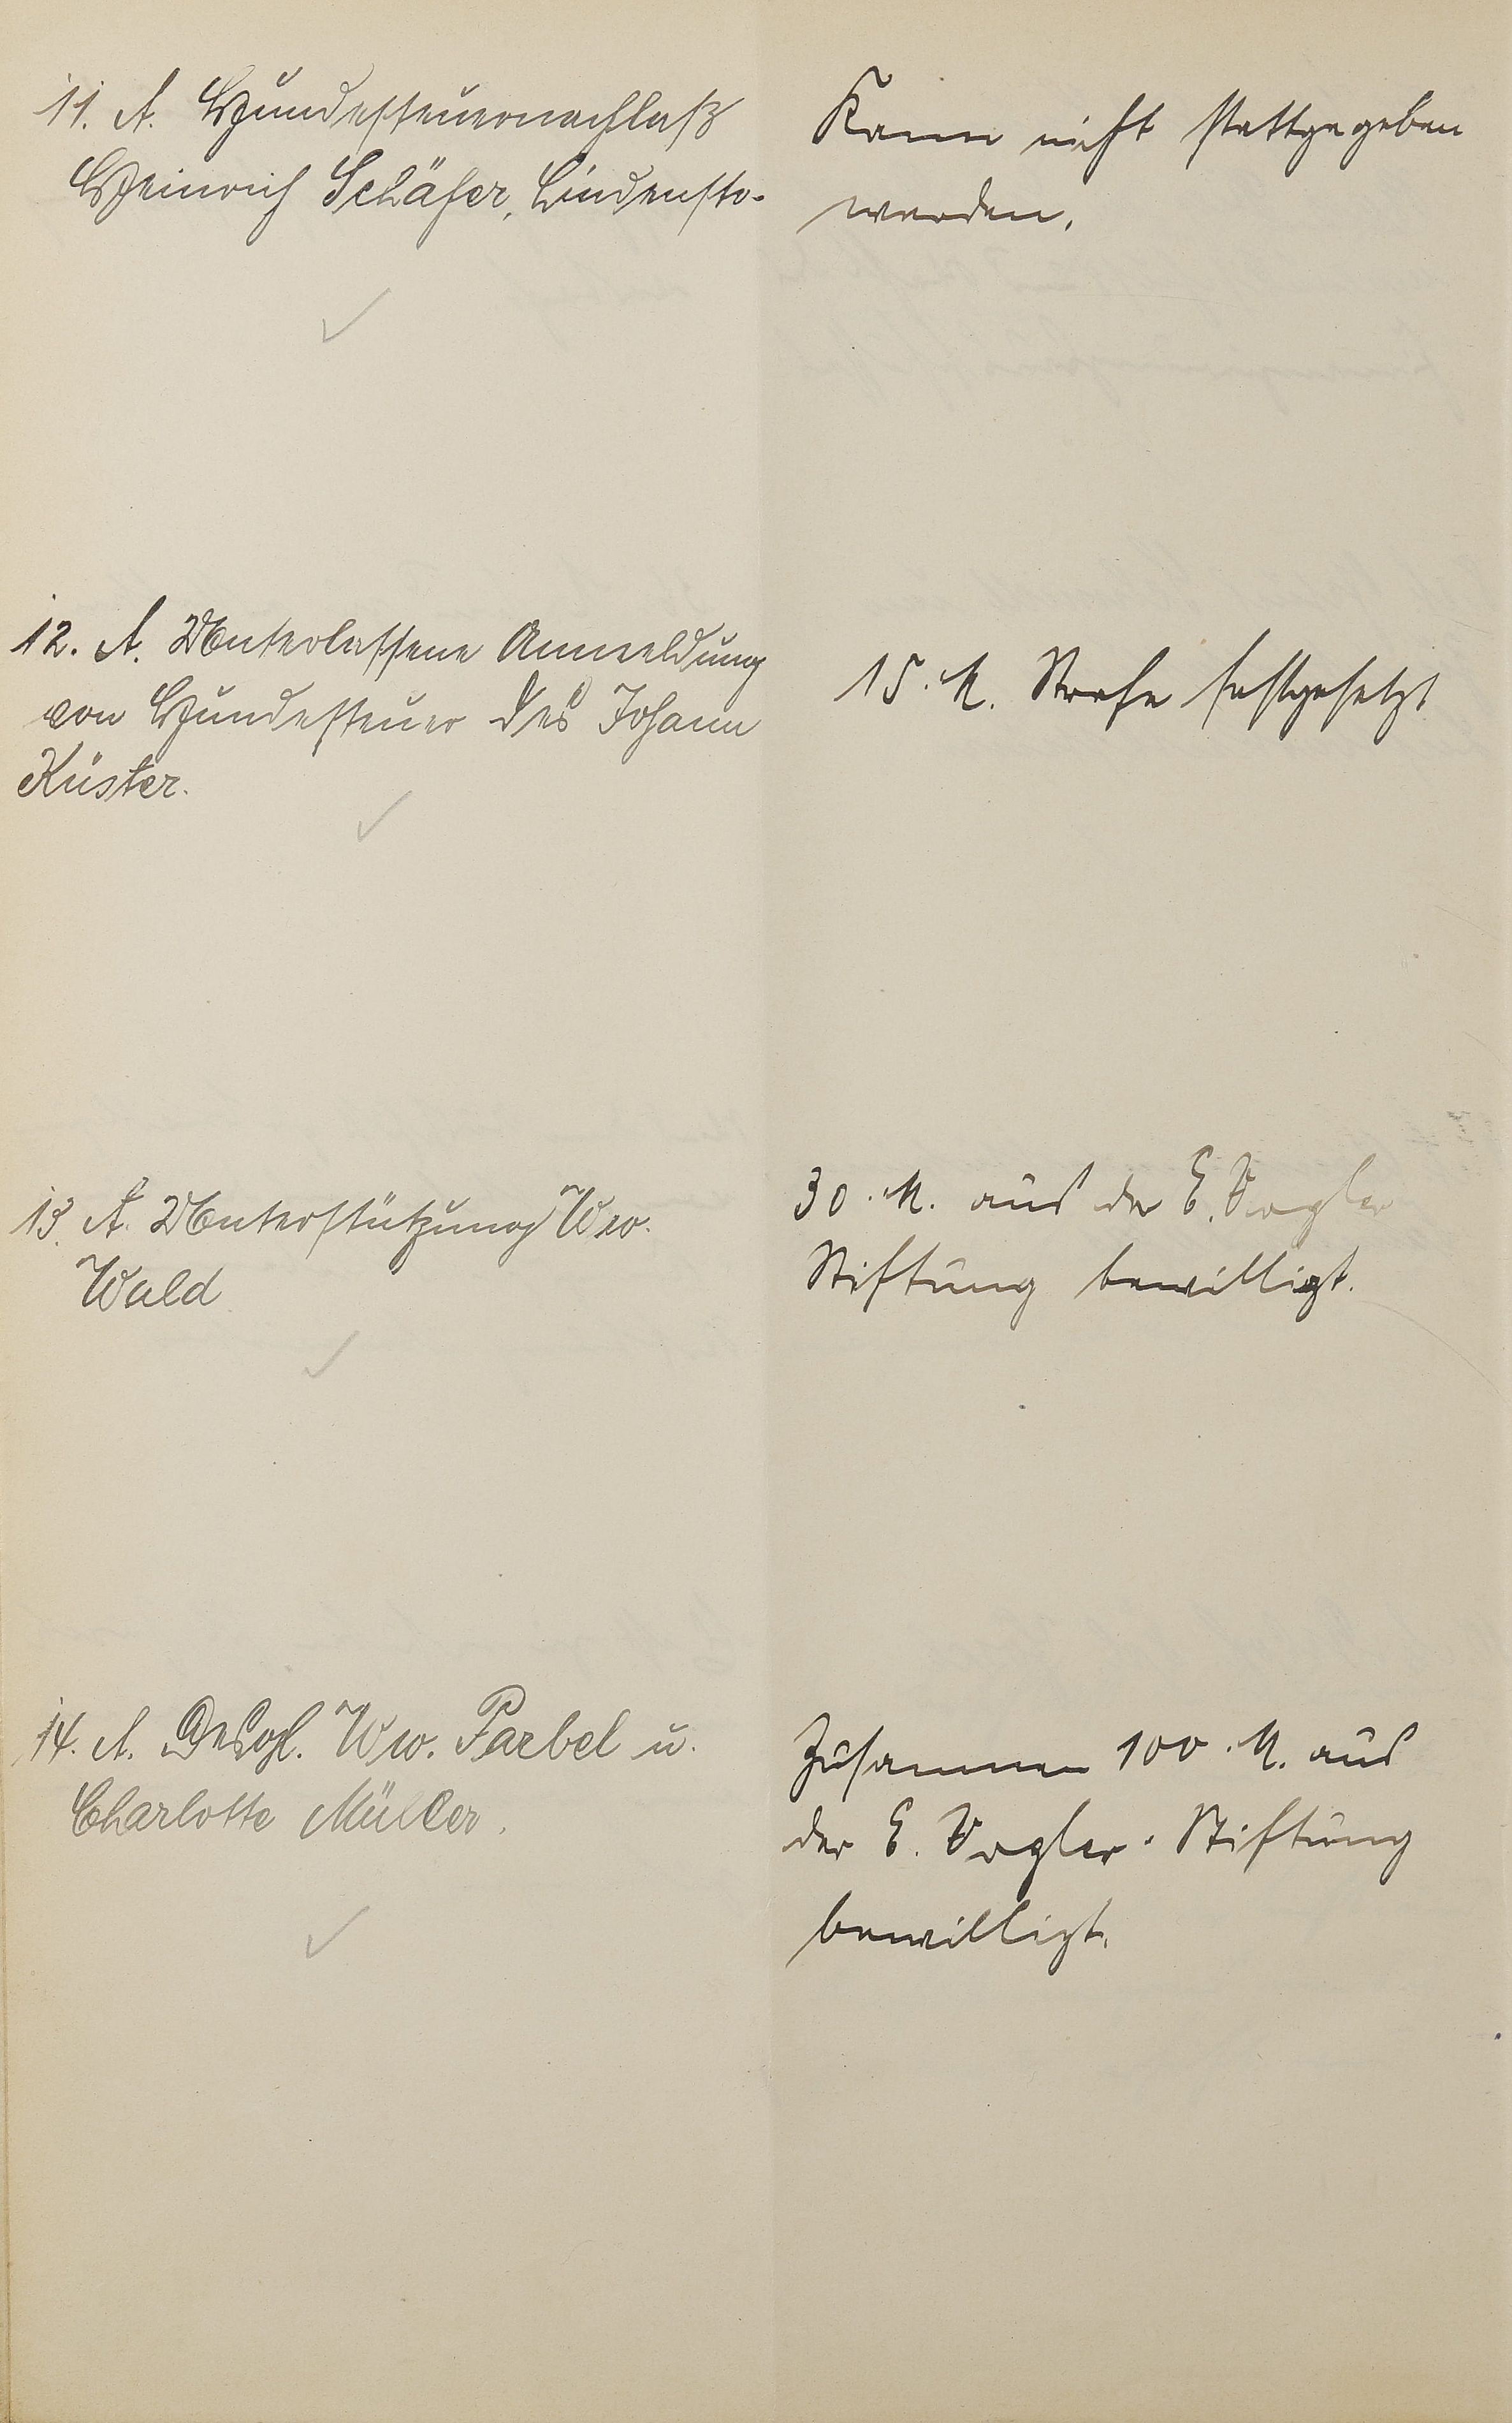 11. A. Hundesteuernachlaß
Heinrich Schäfer, Lindenstr.
Kann nicht stattgegeben
werden.
12. A. Unterlassene Anmeldung
von Hundesteuer des Johann
Küster.
15 M. Strafe festgesetzt
13. A. Unterstützung Ww.
Wald
30 M. aus der E. Vogler
Stiftung bewilligt.
14. A. Desgl. Ww. Farbel u.
Charlotte Müller.
Zusammen 100 M. aus
der E. Vogler-Stiftung
bewilligt.